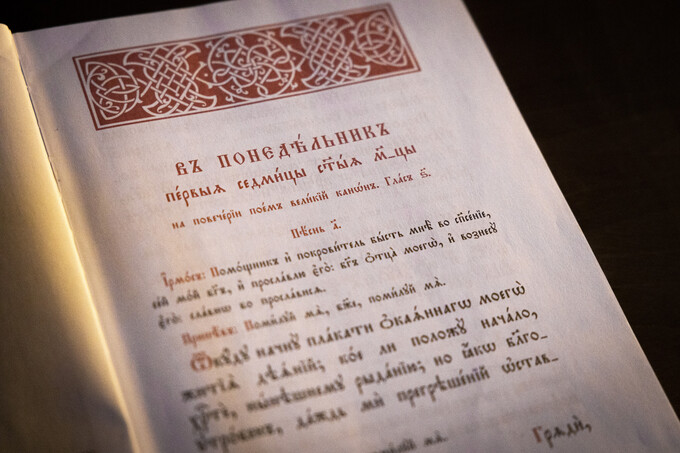 въ понедѣ́льникъ
пе́рвыѧ седми́цы ст҃ы́ѧ м҃-цы
на повече́рїи пое́мъ вели́кїй кано́нъ. Гла́съ ѕ҃.
Пѣ́снь а҃.
І҆рмо́съ: Помо́щникъ и҆ покрови́тель бы́сть мнѣ̀ во спⷭ҇е́нїе,
се́й мо́й бг҃ъ, и҆ просла́влю є҆го̀: бг҃ъ ѻ҆тца̀ моегѡ̀, и҆ вознесꙋ̀
є҆го̀: сла́внѡ бо просла́висѧ.
Припѣ́въ: Поми́лꙋй мѧ̀, бж҃е, поми́лꙋй мѧ̀.
Ѿкꙋ́дꙋ начнꙋ̀ пла́кати ѻ҆каѧ́ннагѡ моегѡ̀
житїѧ̀ дѣѧ́нїй; ко́е ли положꙋ̀ нача́ло,
хрⷭ҇тѐ, ны́нѣшнемꙋ рыда́нїю; но ꙗ҆́кѡ бл҃го-
ꙋтро́бенъ, да́ждь мѝ прегрѣше́нїй ѡ҆ставле́-
поми́лꙋй мѧ̀.
Грѧдѝ,